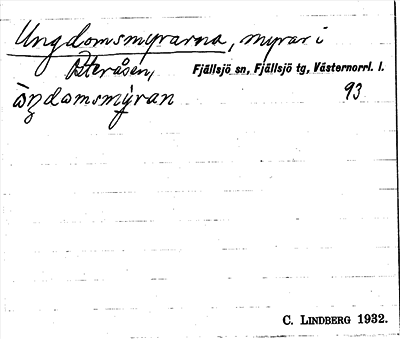 Ungdomsmyrarna, myrar i
Österåsen, Fjällsjö sn, Fjällsjö tg, Västernorrl. l.
93
C. LINDBERG 1932.